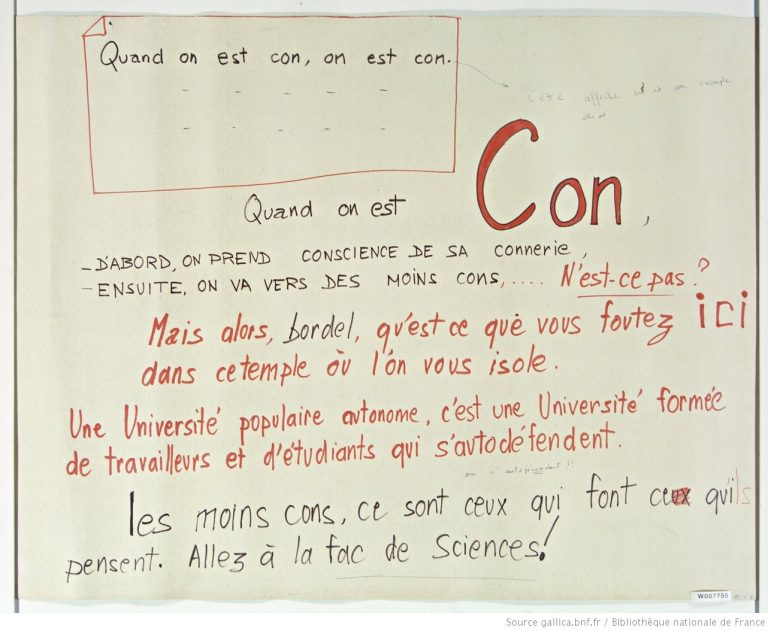 Quand on est con, on est con.
- - - - -
- - - - -
Cette affiche est un exemple
Quand on est Con,
- D'ABORD, ON PREND CONSCIENCE DE SA connerie,
- ENSUITE, ON VA VERS DES MOINS CONS,.... N'est-ce pas?
Mais alors, bordel, qu'est ce que vous foutez ici
dans ce temple où l'on vous isole.
Une Université populaire autonome, c'est une Université formée
de travailleurs et d'étudiants qui s'autodéfendent.
les moins cons, ce sont ceux qui font ceux qu'ils
pensent. Allez à la fac de Sciences!
W007755
Source gallica.bnf.fr / Bibliothèque nationale de France